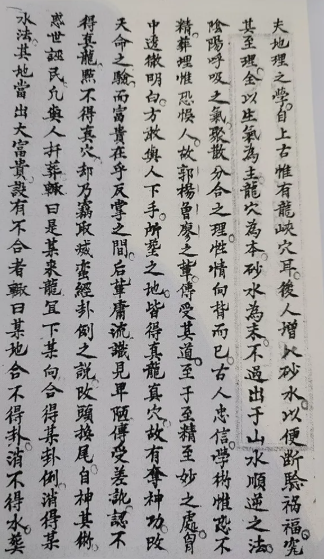 夫地理之學自上古惟有龍峽穴耳後人增此砂水以便断驗禍福究
其至理全以生氣為主龍穴為本砂水為末不過出于山水順逆之法
陰陽呼吸之氣聚散分合之理性情向背而已古人忠信學術惟恐不
精葬埋惟恐悞人故郭楊曾廖之輩傳受其道至于至精至妙之處胷
中透徹明白方敢與人下手所塟之地皆得真龍真穴故有奪神功改
天命之驗而富貴在乎反掌之間后輩庸流識見卑陋傳受差訛認不
得真龍㸃不得真穴却乃竊取滅蛮經卦例之說改頭換尾自神其術
惑世誣民凢與人扦葬輙曰是某来龍宜下某向合得某卦例消得某
水法其地當出大富貴設有不合者輙曰某地合不得卦消不得水葬